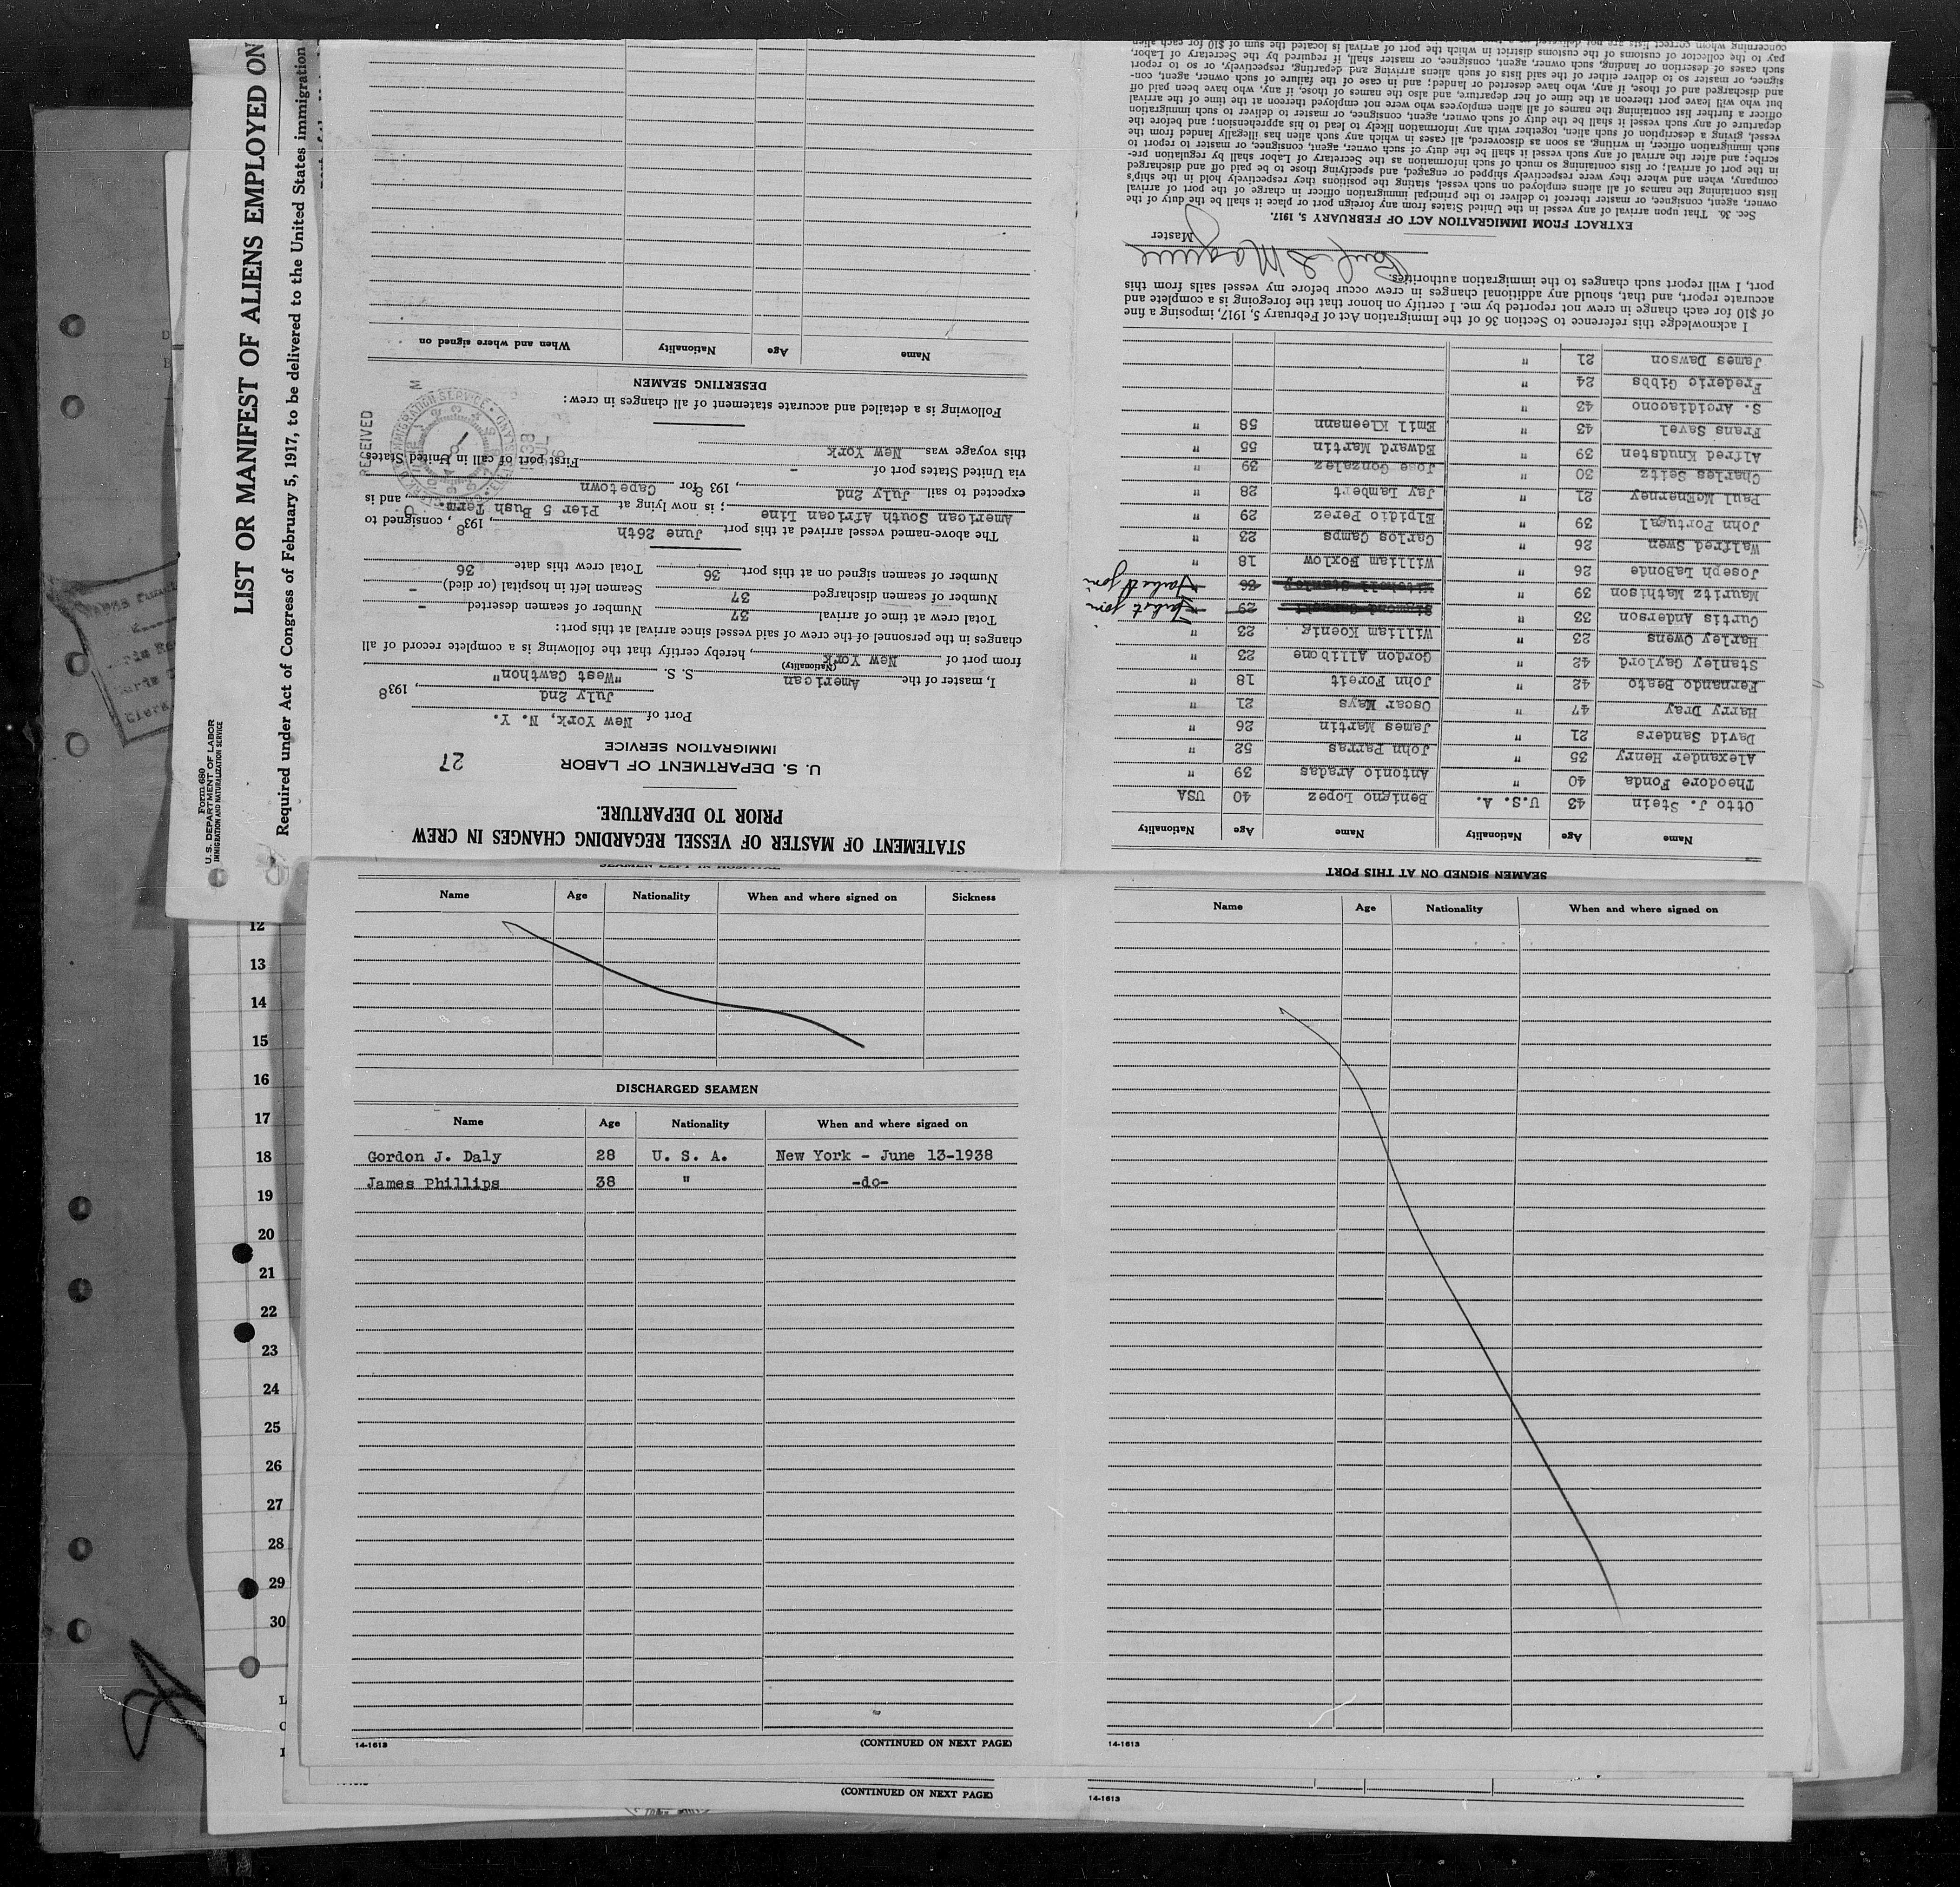 Form 680
U. S. DEPARTMENT OF LABOR
IMMIGRATION AND NATURALIZATION SERVICE
LIST OR MANIFEST OF ALIENS EMPLOYED ON
Required under Act of Congress of February 5, 1917, to be delivered to the United States immigration
STATEMENT OF MASTER OF VESSEL REGARDING CHANGES IN CREW
PRIOR TO DEPARTURE.
U. S. DEPARTMENT OF LABOR
IMMIGRATION SERVICE
27
Port of New York, N. Y.
July 2nd, 1938
I, master of the American S. S. "West Cawthon"
(Nationality)
from port of New York, hereby certify that the following is a complete record of all
changes in the personnel of the crew of said vessel since arrival at this port:
Total crew at time of arrival 37 Number of seamen deserted -
Number of seamen discharged 37 Seamen left in hospital (or died) -
Number of seamen signed on at this port 36 Total crew this date 36
The above-named vessel arrived at this port June 26th, 1938, consigned to
American South African Line; is now lying at Pier 5 Bush Term. and is
expected to sail July 2nd, 1938 for Capetown
via United States port of - First port of call in United States
this voyage was New York
RECEIVED
Following is a detailed and accurate statement of all changes in crew:
DESERTING SEAMEN
Name Age Nationality When and where signed on
SEAMEN LEFT IN HOSPITAL
Name Age Nationality When and where signed on Sickness
DISCHARGED SEAMEN
Name Age Nationality When and where signed on
Gordon J. Daly 28 U. S. A. New York - June 13-1938
James Phillips 38 " -do-
14-1613 (CONTINUED ON NEXT PAGE)
(CONTINUED ON NEXT PAGE)
SEAMEN SIGNED ON AT THIS PORT
Name Age Nationality When and where signed on
14-1613
14-1613
Name Age Nationality Name Age Nationality
Otto J. Stein 43 U.S. A. Benigno Lopez 40 USA
Theodore Fonda 40 " Antonio Aradas 39 "
Alexander Henry 35 " John Parras 52 "
David Sanders 21 " James Martin 26 "
Harry Dray 47 " Oscar Mays 21 "
Fernando Beato 42 " John Foreit 18 "
Stanley Gaylord 42 " Gordon Allibone 23 "
Harley Owens 23 " William Koenig 23 "
Curtis Anderson 33 " 29 " Failed join
Mauritz Mathison 39 " Mitchell Stanley 36 " Failed join
Joseph LaBonde 26 " William Boxlow 18 "
Walfred Swen 26 " Carlos Camps 23 "
John Portugal 39 " Elpidio Perez 29 "
Paul McEnerney 21 " Jay Lambert 28 "
Charles Seitz 30 " Jose Gonzalez 39 "
Alfred Knudsten 39 " Edward Martin 55 "
Frans Savel 43 " Emil Kleemann 58 "
S. Arcidiacono 43 "
Frederic Gibbs 24 "
James Dawson 21 "
I acknowledge this reference to Section 36 of the Immigration Act of February 5, 1917, imposing a fine
of $10 for each change in crew not reported by me. I certify on honor that the foregoing is a complete and
accurate report, and that, should any additional changes in crew occur before my vessel sails from this
port, I will report such changes to the immigration authorities.
Master
EXTRACT FROM IMMIGRATION ACT OF FEBRUARY 5, 1917.
Sec. 36. That upon arrival of any vessel in the United States from any foreign port or place it shall be the duty of the
owner, agent, consignee, or master thereof to deliver to the principal immigration officer in charge of the port of arrival
lists containing the names of all aliens employed on such vessel, stating the positions they respectively hold in the ship's
company, when and where they were respectively shipped or engaged, and specifying those to be paid off and discharged
in the port of arrival; or lists containing so much of such information as the Secretary of Labor shall by regulation pre-
scribe; and after the arrival of any such vessel it shall be the duty of such owner, agent, consignee, or master to report to
such immigration officer, in writing, as soon as discovered, all cases in which any such alien has illegally landed from the
vessel, giving a description of such alien, together with any information likely to lead to his apprehension; and before the
departure of any such vessel it shall be the duty of such owner, agent, consignee, or master to deliver to such immigration
officer a further list containing the names of all alien employees who were not employed thereon at the time of the arrival
but who will leave port thereon at the time of her departure, and also the names of those, if any, who have been paid off
and discharged and of those, if any, who have deserted or landed; and in case of the failure of such owner, agent, con-
signee, or master so to deliver either of the said lists of such aliens arriving and departing, respectively, or so to report
such cases of desertion or landing, such owner, agent, consignee, or master shall, if required by the Secretary of Labor,
pay to the collector of customs of the customs district in which the port of arrival is located the sum of $10 for each alien
concerning whom correct lists are not delivered
12
13
14
15
16
17
18
19
20
21
22
23
24
25
26
27
28
29
30